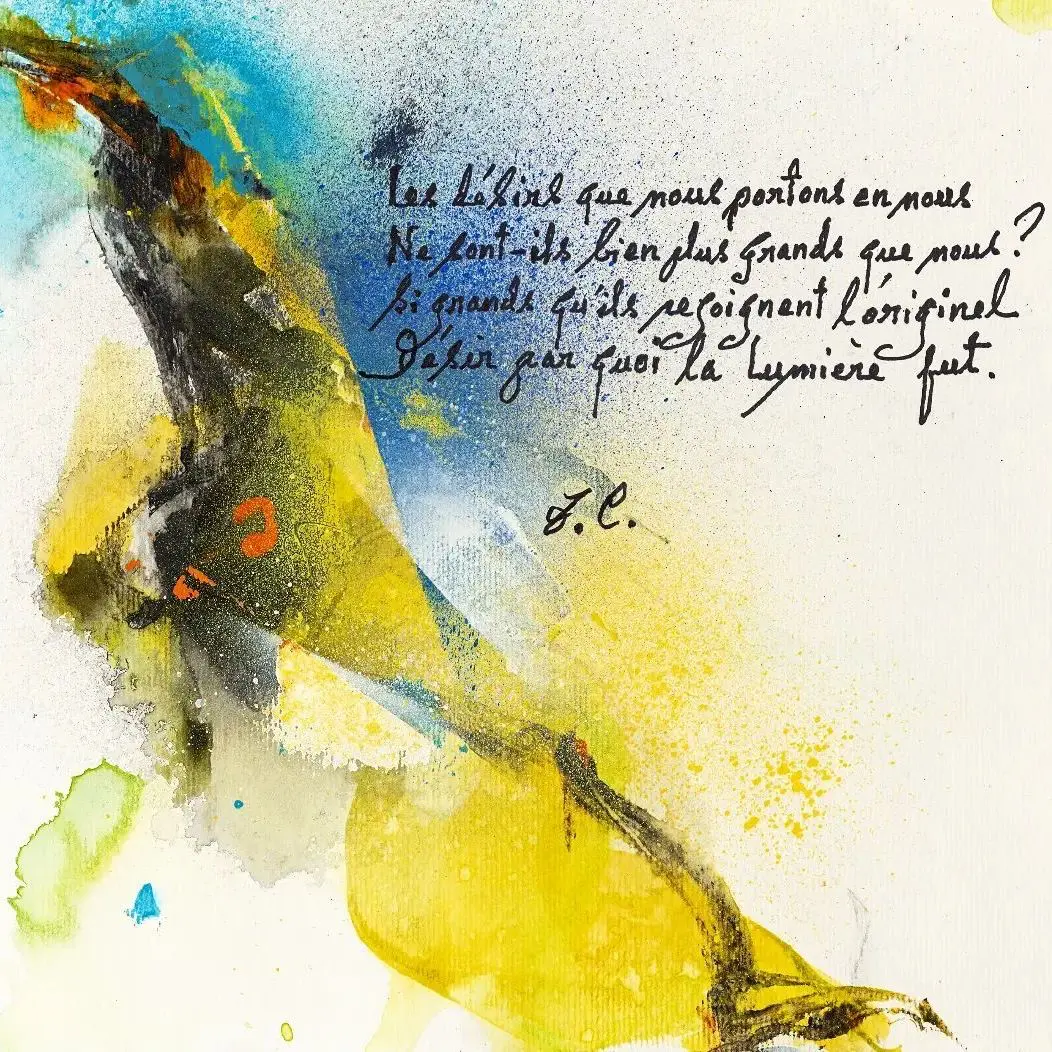 Les désirs que nous portons en nous
Ne sont-ils bien plus grands que nous ?
Si grands qu'ils rejoignent l'originel
Désir par quoi la Lumière fut.
F. C.